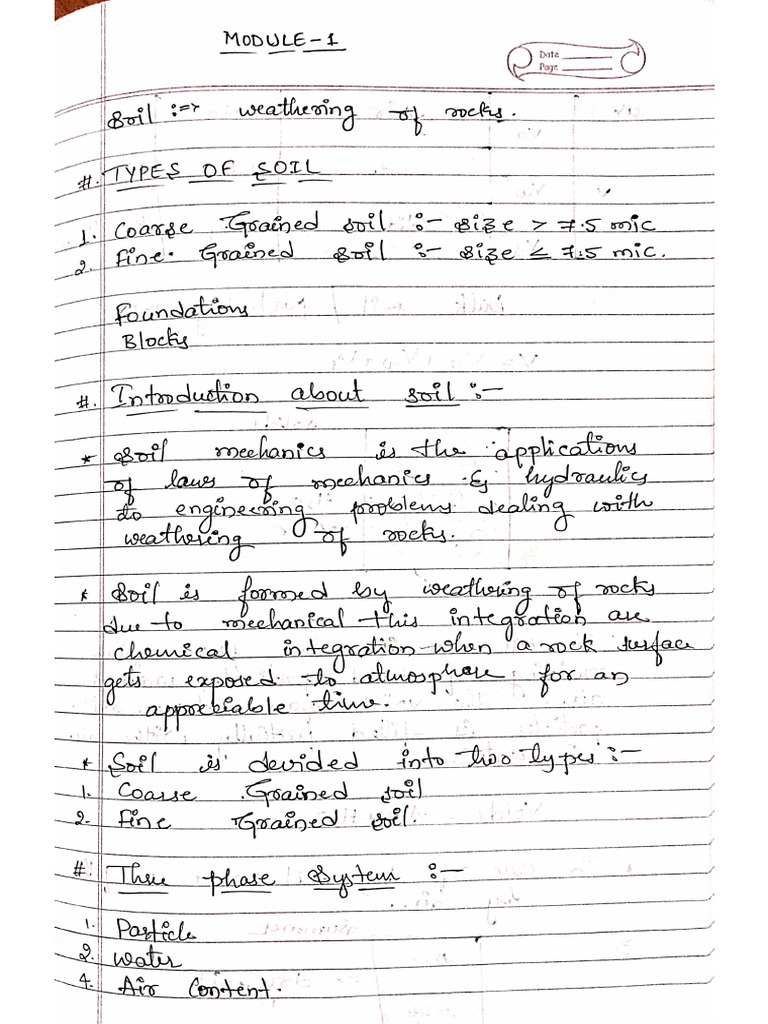 MODULE-1
Date
Page
Soil :=> weathering of rocks.
#. TYPES OF SOIL
1. Coarse Grained soil :- size > 7.5 mic
2. Fine. Grained soil :- size ≤ 7.5 mic.
Foundations
Blocks
#. Introduction about soil :-
* Soil mechanics is the applications
of laws of mechanics & hydraulics
to engineering problems dealing with
weathering of rocks.
* Soil is formed by weathering of rocks
due to mechanical this integration are
chemical integration when a rock surface
gets exposed to atmosphere for an
appreciable time.
* Soil is devided into two types :-
1. Coarse Grained soil
2. Fine Grained soil.
#. Three phase System :-
1. Particle
2. Water
4. Air Content.